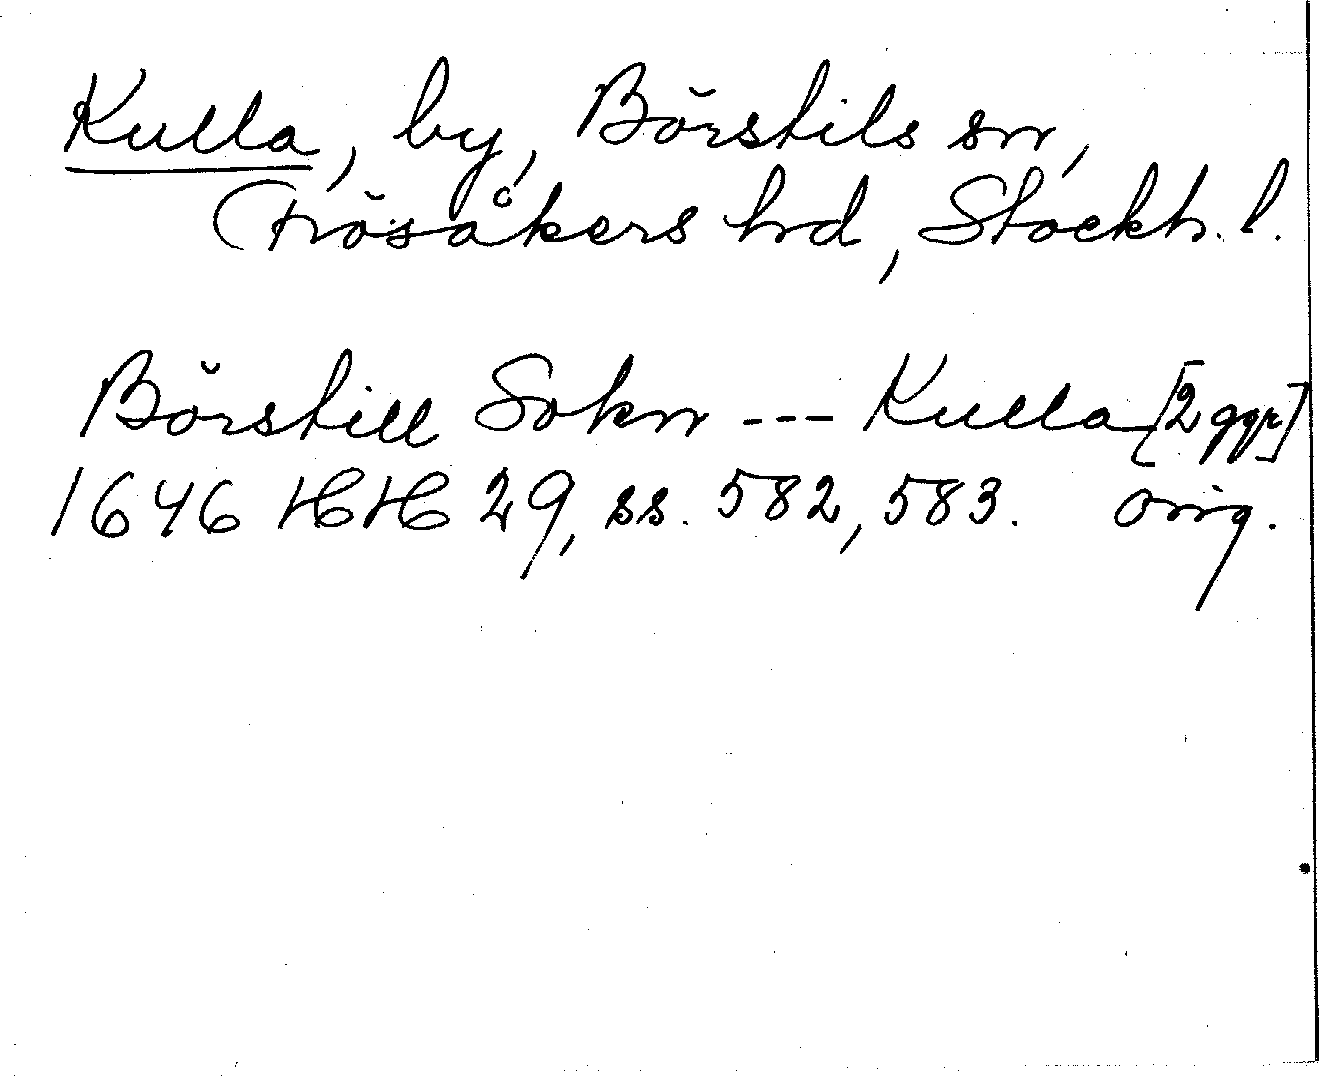 Kulla, by, Börstils sn,
Frösåkers hd, Stockh. l.
Börstill Sokn --- Kulla [2 ggr]
1646 HH 29, ss. 582, 583. Orig.